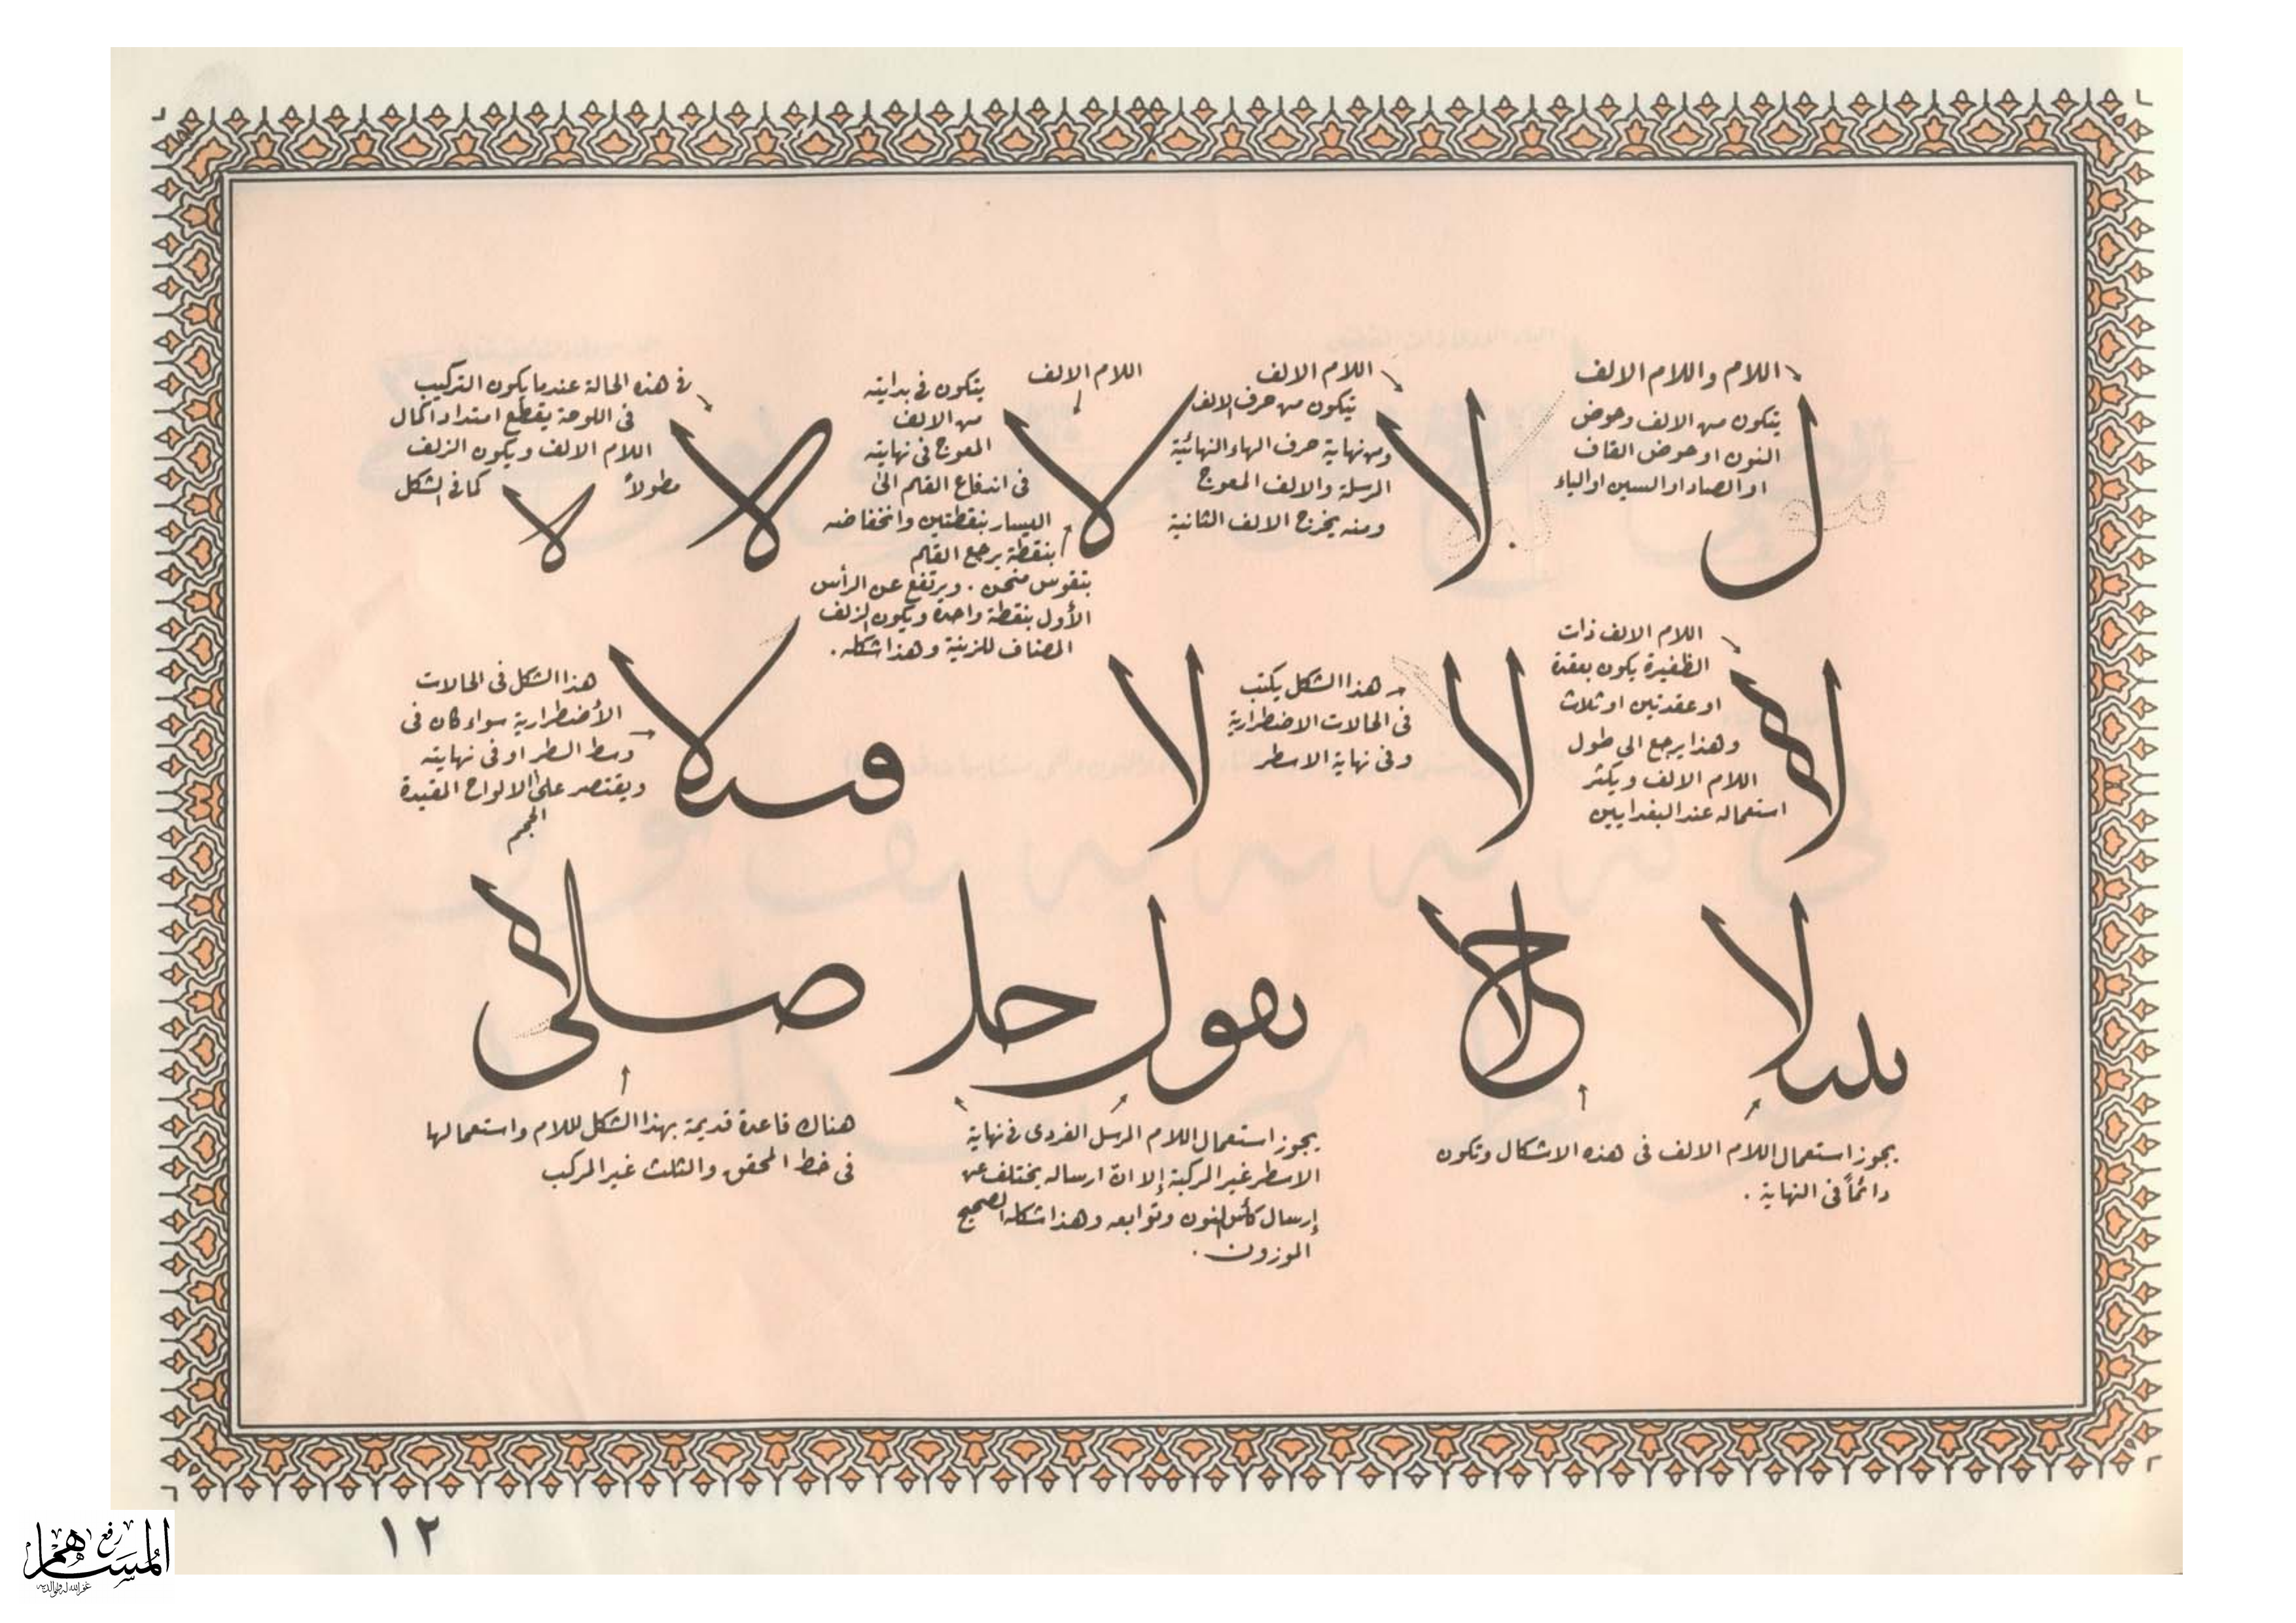 اللام واللام الالف
يتكون من الالف وحوض
النون او حوض القاف
او الصاد او السين او الياء
ل
اللام الالف
يتكون من حرف الالف
ومن نهاية حرف الهاء النهائية
المرسلة والالف المعوج
ومنه يخرج الالف الثانية
لا
اللام الالف
يتكون في بدايته
من الالف
المعوج في نهايته
في اندفاع القلم الى
اليسار بنقطتين وانخفاضه
بنقطة يرجع القلم
بتقوس منحن . ويرتفع عن الرأس
الأول بنقطة واحدة ويكون الزلف
المضاف للزينة وهذا شكله .
لا
في هذه الحالة عندما يكون التركيب
في اللوحة يقطع امتداد اكمال
اللام الالف ويكون الزلف
مطولاً كما في الشكل
لا لا
اللام الالف ذات
الظفيرة يكون بعقدة
او عقدتين او ثلاث
وهذا يرجع الى طول
اللام الالف ويكثر
استعماله عند البغداديين
لا
لا
هذا الشكل يكتب
في الحالات الاضطرارية
وفي نهاية الاسطر
لا
هذا الشكل في الحالات
الأضطرارية سواء كان في
وسط السطر او في نهايته
ويقتصر على الالواح المقيدة
الحجم
يجوز استعمال اللام الالف في هذه الاشكال وتكون
دائماً في النهاية .
يجوز استعمال اللام المرسل الفردى في نهاية
الاسطر غير المركبة إلا انّ ارساله يختلف عن
إرسال كأس النون وتوابعه وهذا شكله الصحيح
الموزون .
هناك قاعدة قديمة بهذا الشكل للام واستعمالها
في خط المحقق والثلث غير المركب
١٢
رفع
المساهم
غفر الله له ولوالديه